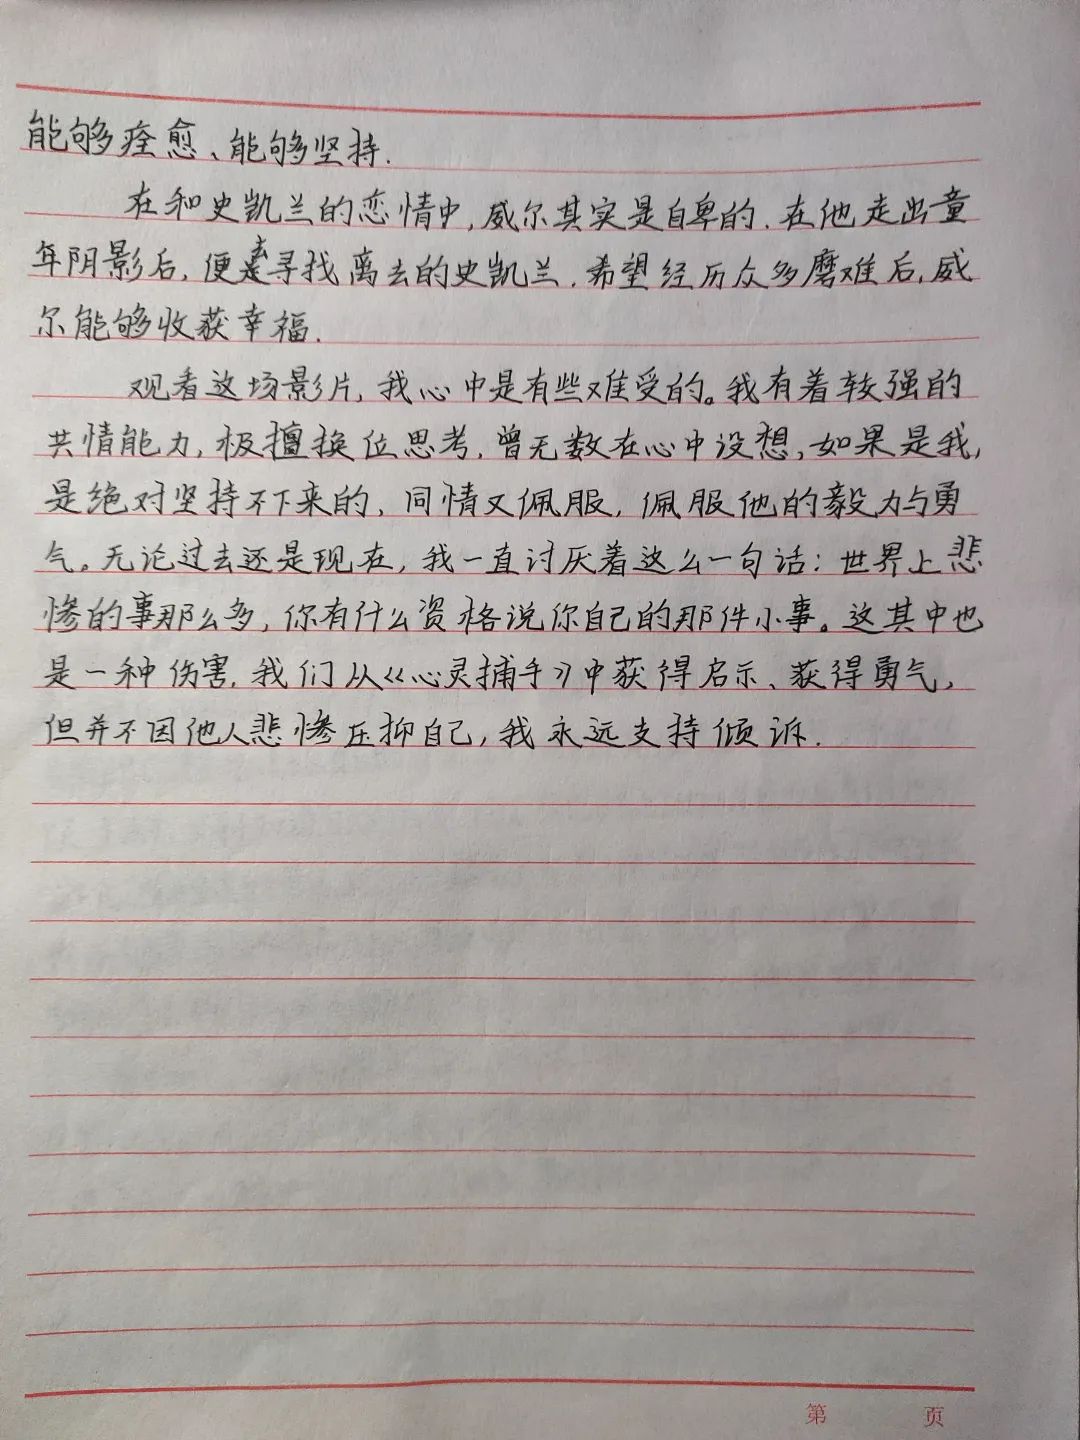 能够痊愈、能够坚持.
在和史凯兰的恋情中,威尔其实是自卑的.在他走出童
年阴影后,便去寻找离去的史凯兰.希望经历众多磨难后,威
尔能够收获幸福.
观看这场影片,我心中是有些难受的。我有着较强的
共情能力,极擅换位思考,曾无数在心中设想,如果是我,
是绝对坚持不下来的,同情又佩服,佩服他的毅力与勇
气。无论过去还是现在,我一直讨厌着这么一句话:世界上悲
惨的事那么多,你有什么资格说你自己的那件小事。这其中也
是一种伤害.我们从《心灵捕手》中获得启示、获得勇气,
但并不因他人悲惨压抑自己,我永远支持倾诉.
第 页